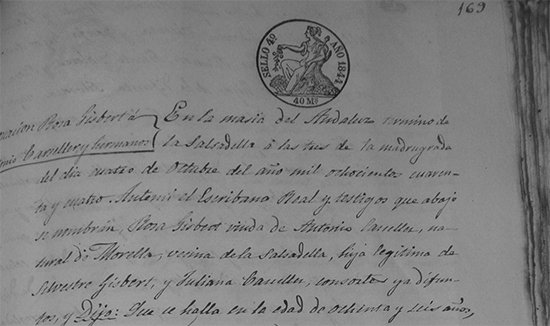 169
SELLO 4º AÑO 1844
40 Ms
Rosa Gisbert á
Caruller y hermanos
En la masia del Andaluz termino de
la Salsadella á las tres de la madrugada
del dia cuatro de Octubre del año mil ochocientos cuaren-
ta y cuatro. Antemi el Escribano Real y testigos que abajo
se nombrán, Rosa Gisbert viuda de Antonio Caruller, na-
tural de Morella, vecina de la Salsadella, hija legitima de
Silvestre Gisbert, y Juliana Caruller, consortes ya difun-
tos, y Dijo: Que se halla en la edad de ochenta y seis años,